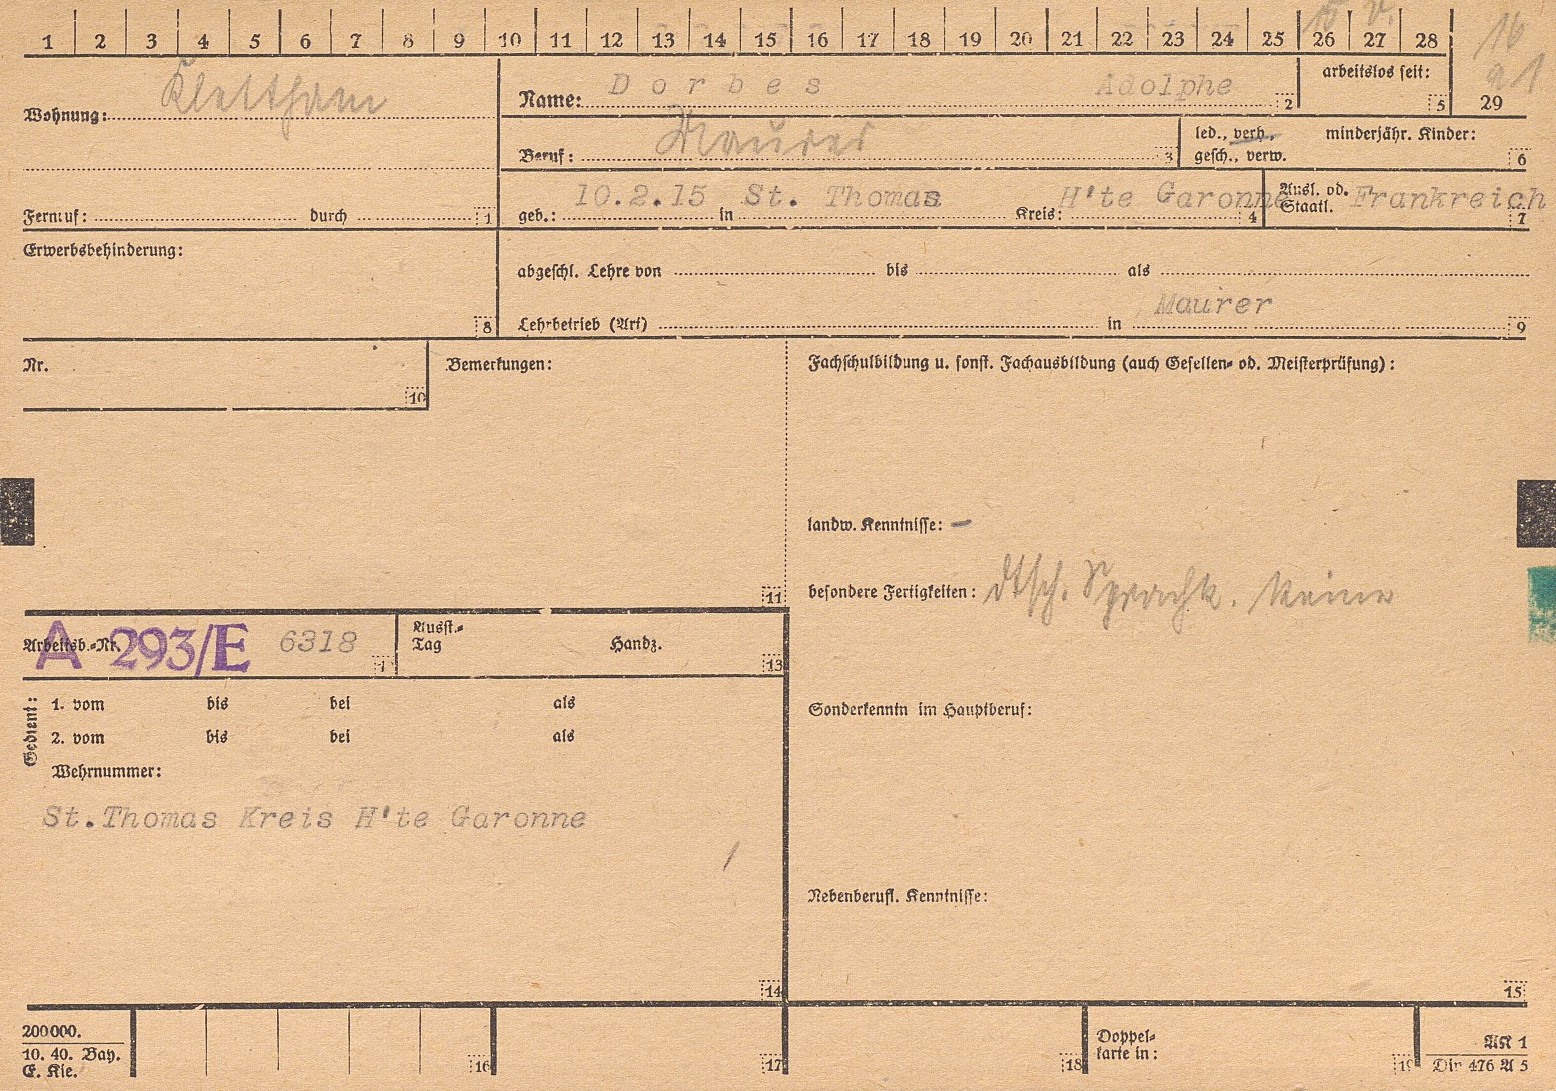 1 2 3 4 5 6 7 8 9 10 11 12 13 14 15 16 17 18 19 20 21 22 23 24 25 26 27 28
15 V. 16
Wohnung: Klettham
Name: Dorbes Adolphe 2
arbeitslos seit: 5
29
Beruf: Maurer 3
led., verh. gesch., verw.
minderjähr. Kinder: 6
Fernruf: durch 1
geb.: 10.2.15 in St. Thomas Kreis: H'te Garonne 4
Ausl. od. Staatl. Frankreich 7
Erwerbsbehinderung: 8
abgeschl. Lehre von bis als
Maurer
Lehrbetrieb (Art) in 9
Nr. 10
Bemerkungen: 11
Fachschulbildung u. sonst. Fachausbildung (auch Gesellen- od. Meisterprüfung):
landw. Kenntnisse: –
besondere Fertigkeiten: dtsch. Sprachk. keine
Arbeitsb.-Nr. A 293/E 6318
Ausst.-Tag Handz. 13
Gedient:
1. vom bis bei als
2. vom bis bei als
Wehrnummer:
St.Thomas Kreis H'te Garonne
14
Sonderkenntn im Hauptberuf:
Nebenberufl. Kenntnisse:
15
200000.
10. 40. Bay.
E. Kie.
16 17 18
Doppelkarte in: 19
AK 1
Din 476 A 5